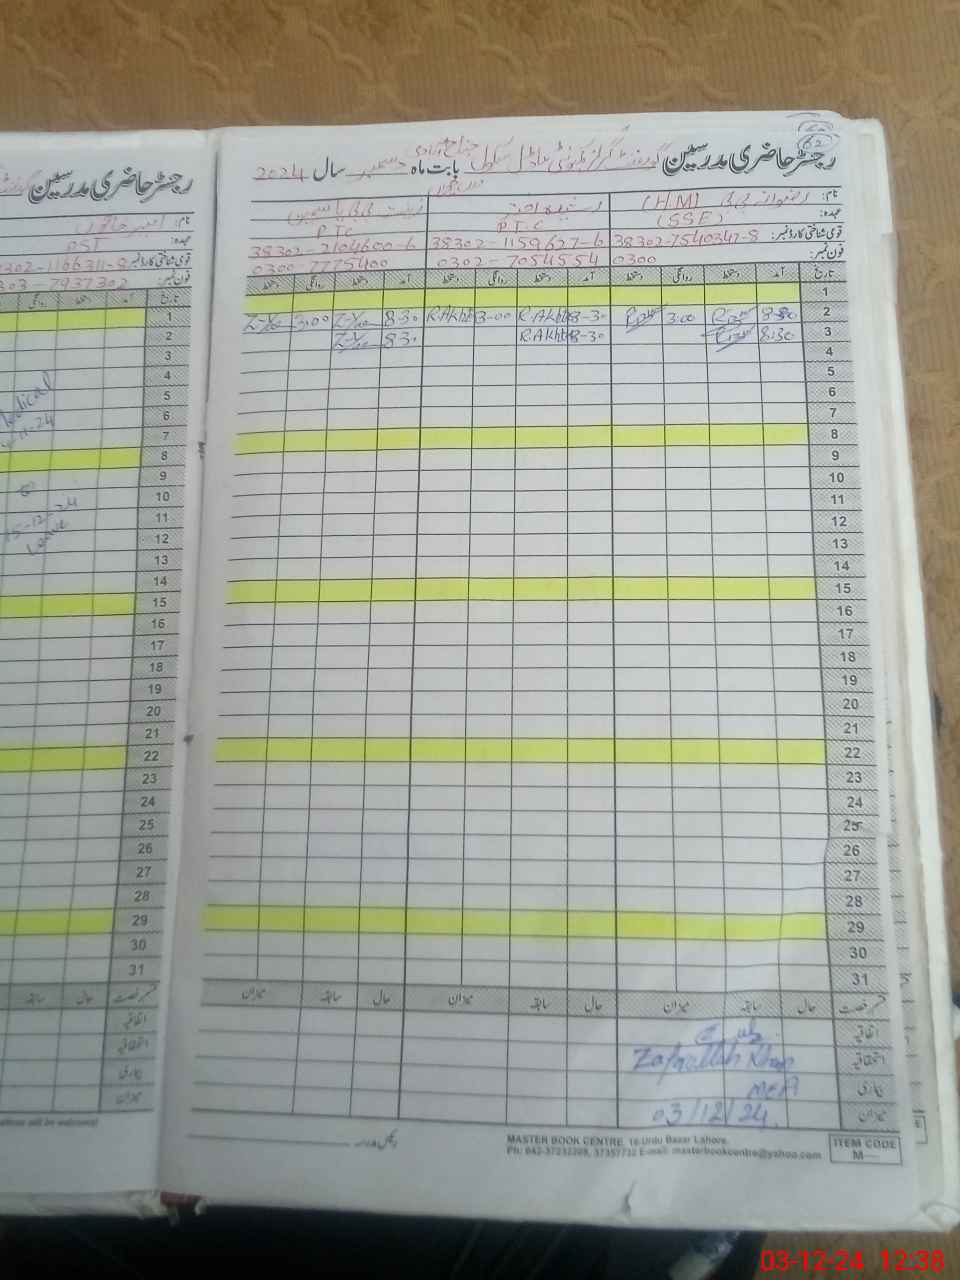 62
رجسٹر حاضری مدرسین گورنمنٹ گرلز کمیونٹی ماڈل سکول جناح آبادی بابت ماہ دسمبر سال 2024
نام: رضوانہ بی بی (H.M)
زینت بی بی یاسمین
عہدہ: (SSE) P.T.C PTC
قومی شناختی کارڈ نمبر: 38302-7540347-8 38302-1159627-6 38302-2104600-6
فون نمبر: 0300 0302-7054554 0300-7775400
تاریخ آمد دستخط روانگی دستخط آمد دستخط روانگی دستخط آمد دستخط روانگی دستخط
1
2 8-30 3:00 8-30 R.Akht 3-00 R.Akht 8-30 3:00
3 8:30 8-30 R.Akht 8-30
4
5
6
7
8
9
10
11
12
13
14
15
16
17
18
19
20
21
22
23
24
25
26
27
28
29
30
31
قسم رخصت حال سابقہ میزان حال سابقہ میزان حال سابقہ میزان
اتفاقیہ
استحقاقیہ
بیماری
میزان
Zafarullah Khan
MEA
03/12/24
MASTER BOOK CENTRE, 16 Urdu Bazar Lahore.
Ph: 042-37232208, 37357732 E-mail: masterbookcentre@yahoo.com
ITEM CODE
M—
رجسٹر حاضری مدرسین
نام:
عہدہ: PST
قومی شناختی کارڈ نمبر: 302-1166311-8
فون نمبر: 303-7937302
تاریخ آمد دستخط روانگی
1
2
3
4
5
6
7
8
9
10
11
12
13
14
15
16
17
18
19
20
21
22
23
24
25
26
27
28
29
30
31
Medical
11-24
to
15-12-24
Leave
قسم رخصت حال سابقہ
اتفاقیہ
استحقاقیہ
بیماری
میزان
will be welcomed
03-12-24 12:38